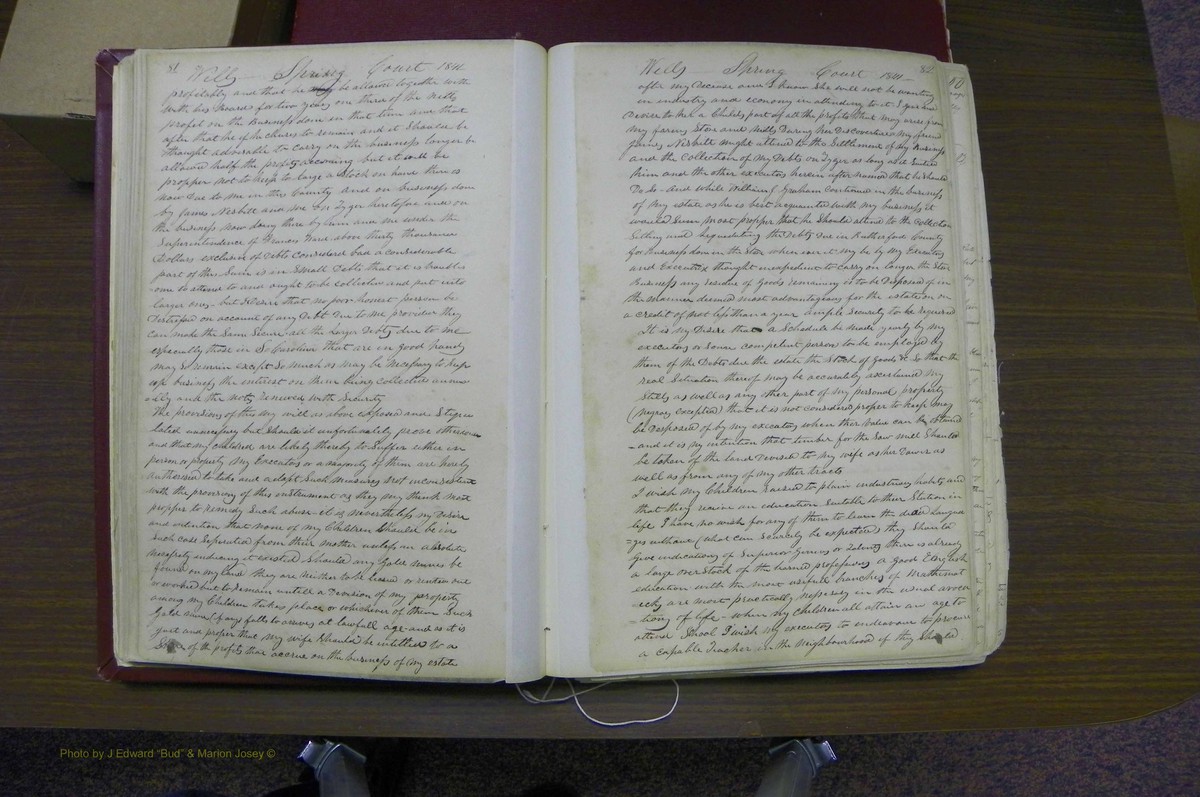 81 Wills Spring Court 1841
profitably and that he may be allowed together with
with his Hoases for two years one third of the netts
profit on the Business done in that time and that
after that he if he chuses to remain and it Should be
thought advisable to Carry on the business longer be
allowed half the profits accoming but it will be
propper not to keep to large a Stock on hand there is
now Due to me in this County and on business done
by James Nesbitt and me on Tyger heretofore and on
the business now doing there by him and me under the
Superintendence of Francis Ward above thirty thousand
Dollars exclusive of Debts Considered bad a considerable
part of this Sum is in Small Debts that it is trouble
=om to attend to and ought to be collected and put into
larger ones. but I Desire that no poor honest person be
Destressed on account of any Debt Due to me provided they
can make the Same Secure, all the Larger Debts due to me
especially those in So Carolina that are in good hands
may remain except So much as may be Necessary to keep
up business the interest on them being collected annu
=ally and the notes renewed with Security
The provisions of this my will as above expressed and Stipu
lated unnecessary but Should it unfortunately prove otherwise
and that my children are likely thereby to Suffer either in
person or property My Executors or a majority of them are hereby
authorised to take and adopt Such Measures not inconsistent
with the provisions of this instrument as they my think most
propper to remedy Such abuse – it is nevertheless my Desire
and intention that none of my Children Should be in
such case Seperated from their mother unless an absolute
necessity inducing it existed Should any Gold mines be
found on my land they are neither to be leased or rented out
or worked but to remain untill a Devision of my property
among my Children takes place or whichever of them Such
Gold mines if any falls to arives at lawfull age and as it is
just and proper that my wife Should be intitled to a
Share of the profits that accrue on the business of my estate
Wills Spring Court 1841 82
after my Decease and I know She will not be wanting
in industry and economy in attending to it I give and
Devise to her a Childs part of all the profits that may arise from
my farms Store and Mills During her Discoverture My friend
James Nesbitt might attend to the Settlement of my Business
and the Collection of my Debts on Tyger as long as it Suited
him and the other executors herein after named that he Should
Do So – and while William G Graham continued in the business
of my estate as he is best acquainted with my business it
would Seem most propper that he Should attend to the Collection
Setling and liquidating the Debts Due in Rutherford County
for business done in the Store when ever it may be by my Executors
and Executrix thought inexpedient to carry on longer the Store
Business any residue of Goods remaining is to be Disposed of in
the manner deemed most advantagious for the estate on on
a credit of not less than a year ample Security to be required
It is my Desire that a Schedule be made yearly by my
executors or Some competent person to be employed by
them of the Debts due the estate the Stock of goods &c. So that the
real Situation thereof may be accurately ascertained my
Stills as well as any other part of my personal property
(negroes excepted) that it is not considered proper to keep may
be Disposed of by my executors when their value can be obtained
– and it is my intention that timber for the Saw mill Should
be taken of the land Devised to my wife as her Dower as
well as from any of my other tracts
I wish my Children raised to plain industrious habits and
that they receive an education Suitable to their Station in
life I have no wish for any of them to learn the dead Langua
=ges without (what can Scarcely be expected) they Should
Give indications of Superior Genius or Talents there is already
a large over Stock of the learned professions a good English
education with the most usefull branches of Mathemat
icks are most practically necessary in the usual avoca
=tions of life – when my children all attain an age to
attend School I wish my executors to endeavour to procure
a capable Teacher in the neighbourhood if they Should
Photo by J Edward "Bud" & Marion Josey ©